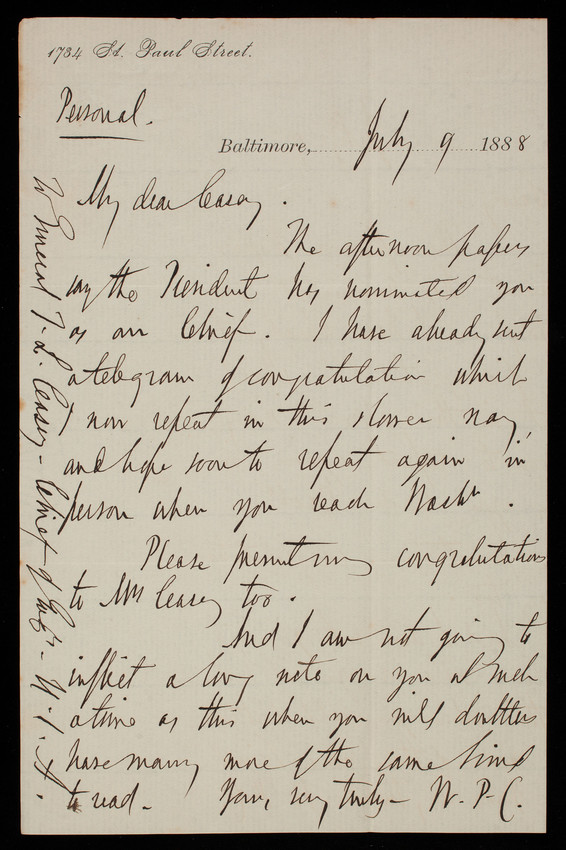 1734 St. Paul Street.
Personal.
Baltimore, July 9 1888
My dear Casey.
The afternoon papers
say the President has nominated you
as our Chief. I have already sent
a telegram of congratulation which
I now repeat in this slower way,
and hope soon to repeat again in
person when you reach Washn.
Please permit my congratulations
to Mrs Casey too.
And I am not going to
inflict a long note on you at such
a time as this when you will doubtless
have many more of the same kind
to read. Yours, very truly - W. P. C.
To General T. L. Casey - Chief of Engrs - U. S. A.